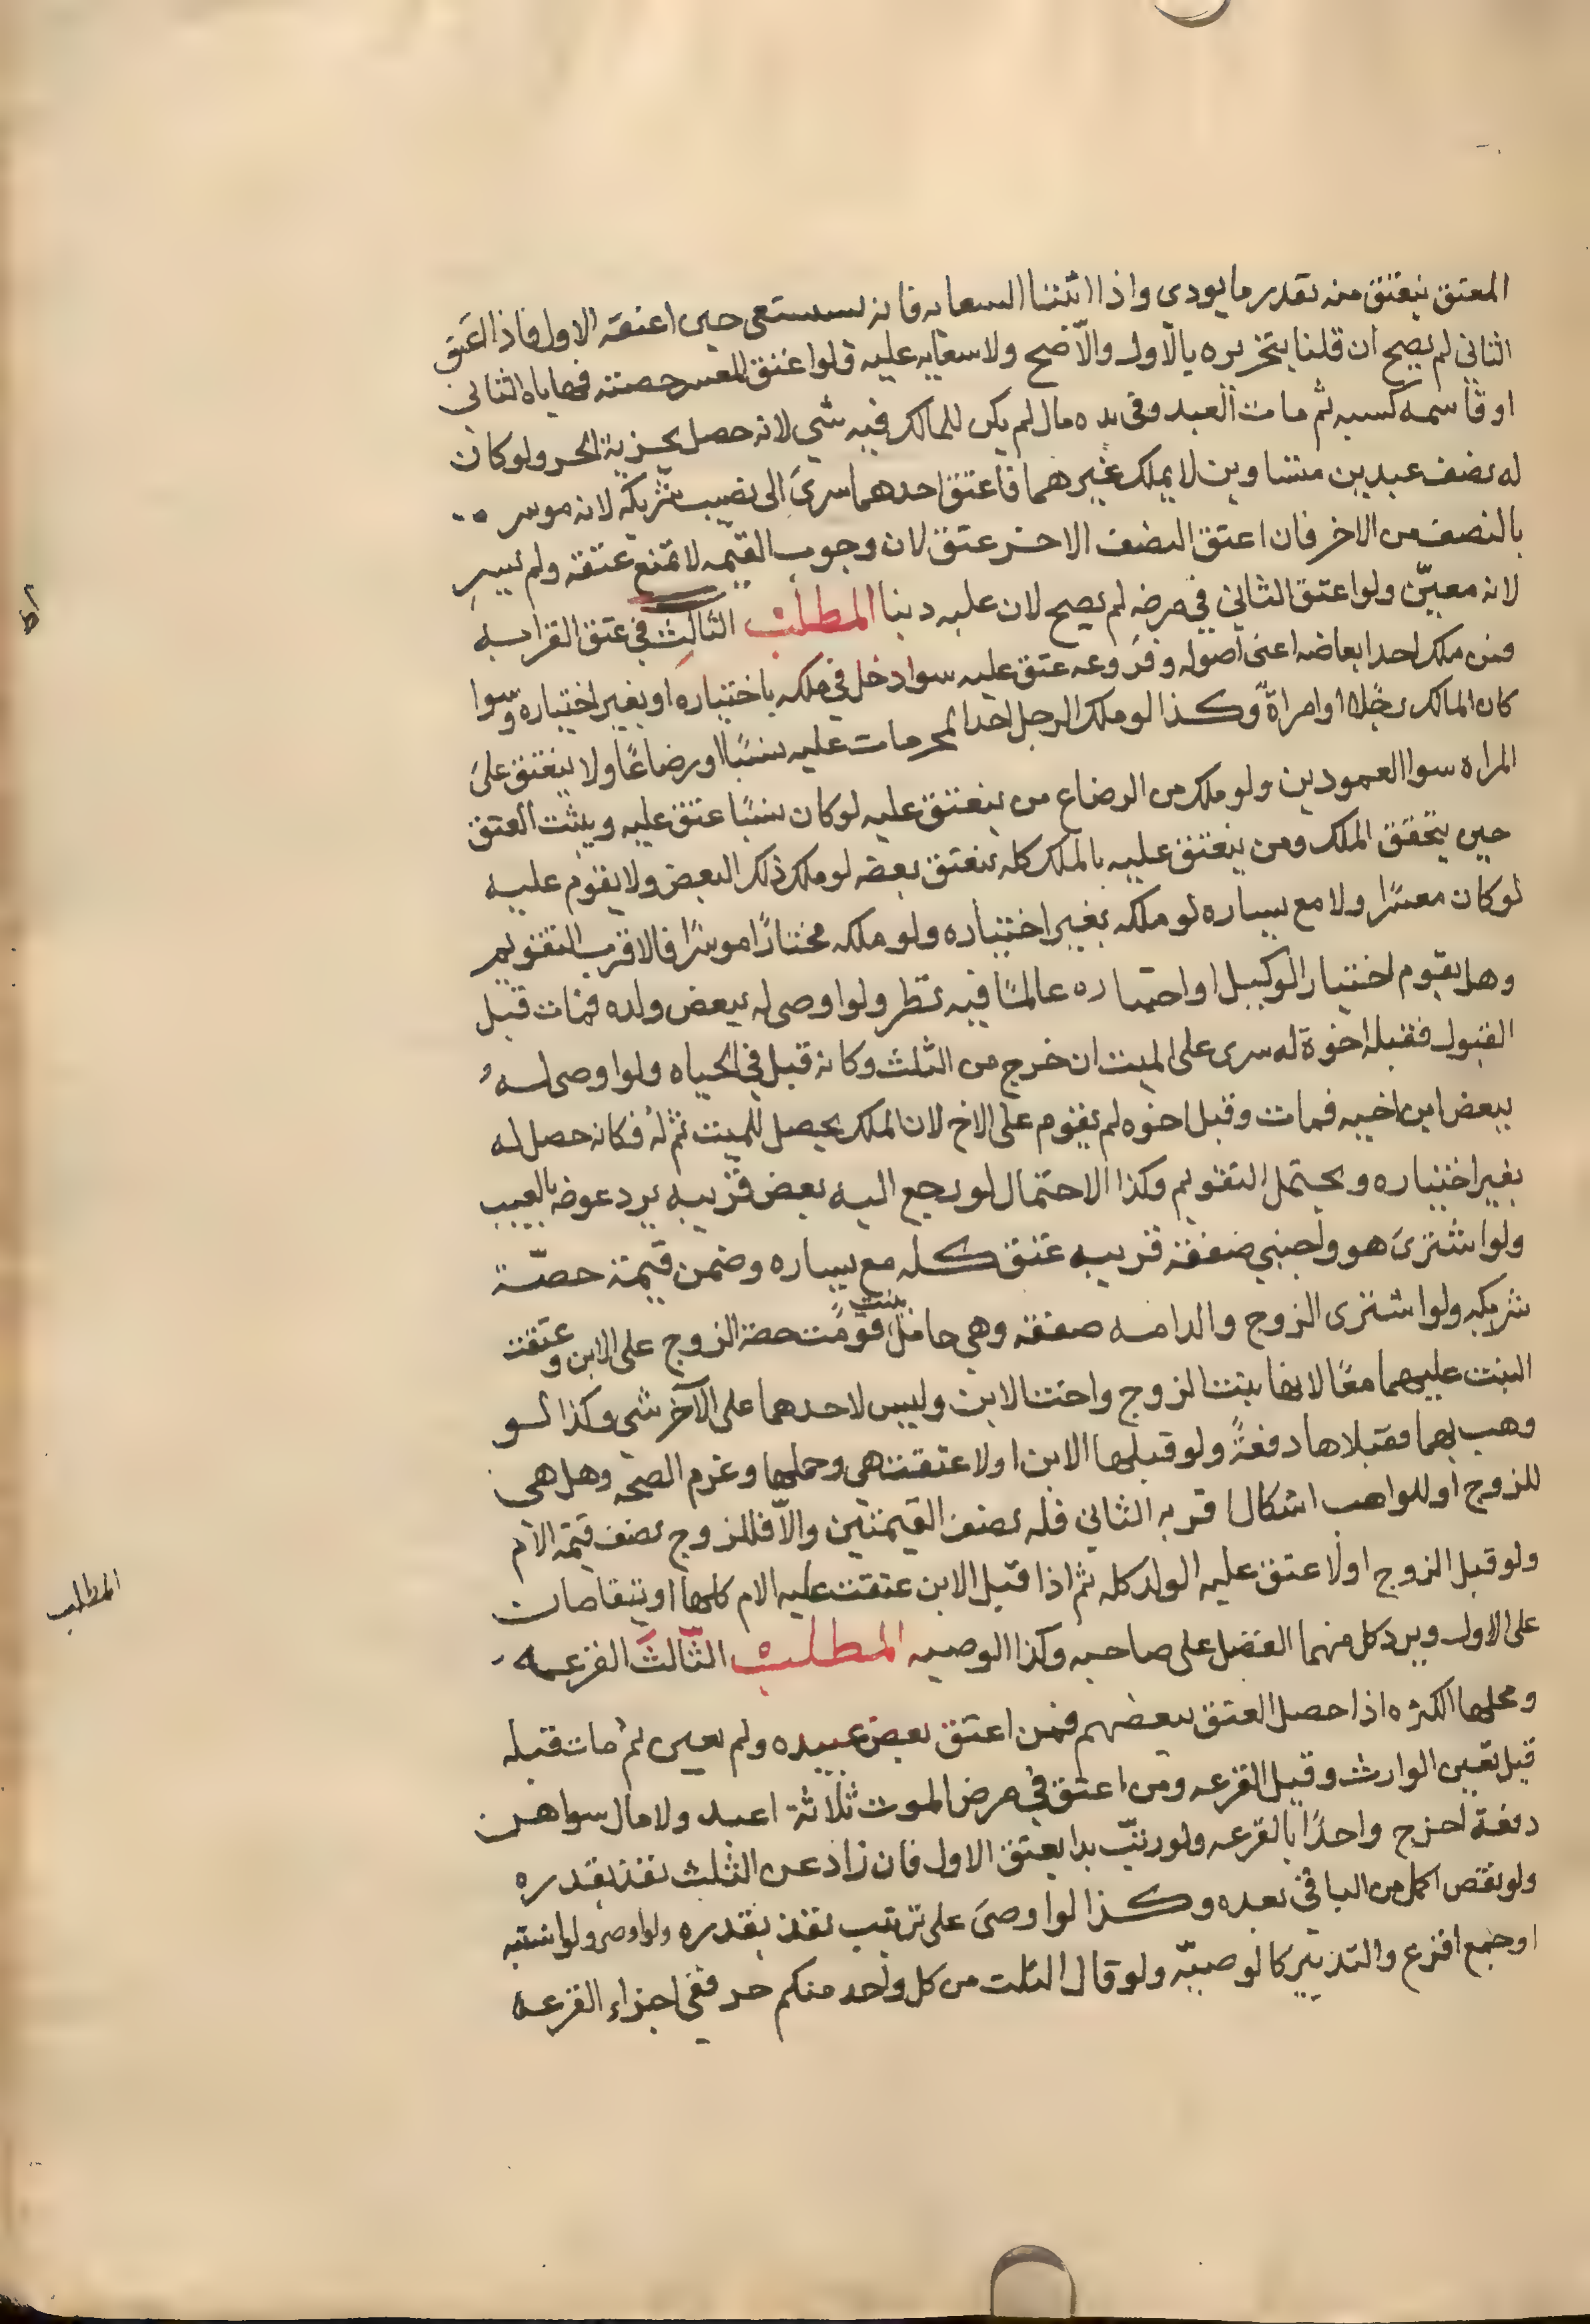 المعتق ينعتق منه بقدر ما يودي واذا اثبتنا السعايه فانه يستسعى حين اعتقه الاول فاذا اعتق
الثاني لم يصح ان قلنا بتحريره بالاول والا صح ولا سعايه عليه ولو اعتق المعسر حصته فهاياه الثاني
او قاسمه كسبه ثم مات العبد وفي يده مال لم يكن للمالك فيه شي لانه حصل بحزية الحر ولو كان
له نصف عبدين متساوين لا يملك غيرهما فاعتق احدهما سرى الى نصيب شريكه لانه موسر
بالنصف من الاخر فان اعتق النصف الاخر عتق لان وجوب القيمه لا تمنع عتقه ولم يسر
لانه معسر ولو اعتق الثاني في مرضه لم يصح لان عليه دينا المطلب الثالث في عتق القرابه
فمن ملك احد ابعاضه اعنى اصوله وفروعه عتق عليه سوا دخل في ملكه باختياره او بغير اختياره وسوا
كان المالك رجلا او امراة وكذا لو ملك الرجل احد المحرمات عليه نسبًا او رضاعًا ولا ينعتق على
المراه سوا العمودين ولو ملك من الرضاع من ينعتق عليه لو كان نسبًا عتق عليه ويثبت العتق
حين يتحقق الملك ومن ينعتق عليه بالملك كله ينعتق بعضه لو ملك ذلك البعض ولا يقوم عليه
لو كان معسرًا ولا مع يساره لو ملكه بغير اختياره ولو ملكه مختارًا موسرًا فالاقرب التقويم
وهل يقوم اختيار الوكيل او اختياره عالمًا فيه نظر ولو اوصى له ببعض ولده فمات قبل
القبول فقبله اخوة له سرى على الميت ان خرج من الثلث وكانه قبل في الحياه ولو اوصى له
ببعض ابن اخيه فمات وقبل اخوه لم يقوم على الاخ لان الملك يحصل للميت ثم له فكانه حصل له
بغير اختياره ويحتمل التقويم وكذا الاحتمال لو رجع اليه بعض قريبه برد عوضه بالعيب
ولو اشترى هو واجنبي صفقة قريبه عتق كله مع يساره وضمن قيمة حصّة
شريكه ولو اشترى الزوج والد امه صفقه وهي حامل ببنت قومت حصة الزوج على الابن وعتقت
البنت عليهما معًا لانها بنت الزوج واخت الابن وليس لاحدهما على الآخر شي وكذا لو
وهب لهما فقبلاها دفعةً ولو قبلها الابن اولا عتقت هي وحملها وغرم القيمه وهل هي
للزوج او للواهب اشكال اقربه الثاني فله نصف القيمتين والا فللزوج نصف قيمة الام
ولو قبل الزوج اولا عتق عليه الولد كله ثم اذا قبل الابن عتقت عليه الام كلها او يتقاصان
على الاول ويرد كل منهما الفضل على صاحبه وكذا الوصيه المطلب الثالث القرعه
ومحلها الكثره اذا حصل العتق لبعضهم فمن اعتق بعض عبيده ولم يعين ثم مات قبله
قبل تعيين الوارث وقيل القرعه ومن اعتق في مرض الموت ثلاثة اعبد ولا مال سواهن
دفعة اخرج واحدًا بالقرعه ولو رتّب بدا بعتق الاول فان زاد عن الثلث نفذ بقدره
ولو نقص اكمل من الباقي بعده وكذا لو اوصى على ترتيب نفذ بقدره ولو اوصى ولو اشتبه
او جمع اقرع والتدبير كالوصيّه ولو قال الثلث من كل واحد منكم حر ففي اجزاء القرعه
المطلب